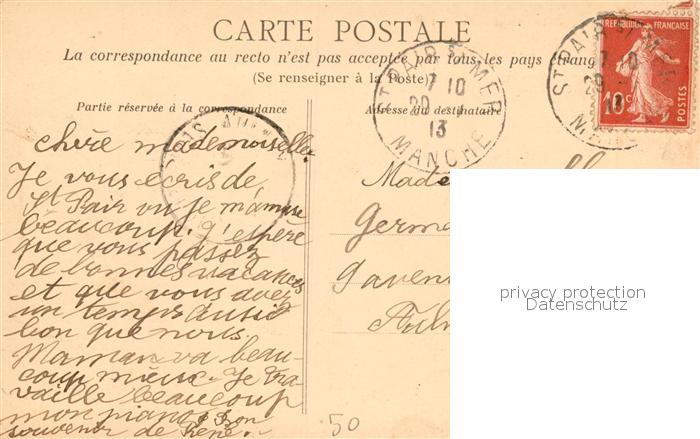 CARTE POSTALE
La correspondance au recto n'est pas acceptée par tous les pays étrang
(Se renseigner à la Poste)
Partie réservée à la correspondance
Adresse du destinataire
RÉPUBLIQUE FRANÇAISE
10c
POSTES
ST PAIR S MER
7 10
20
13
MANCHE
ST PAIR S MER
chère mademoiselle
Je vous écris de
St Pair ou je m'amuse
beaucoup. J'espère
que vous passez
de bonnes vacances
et que vous avez
un temps aussi
bon que nous.
Maman va beau-
coup mieux. Je tra
vaille beaucoup
mon piano. Bon
souvenir de René.
Germa
50
privacy protection
Datenschutz